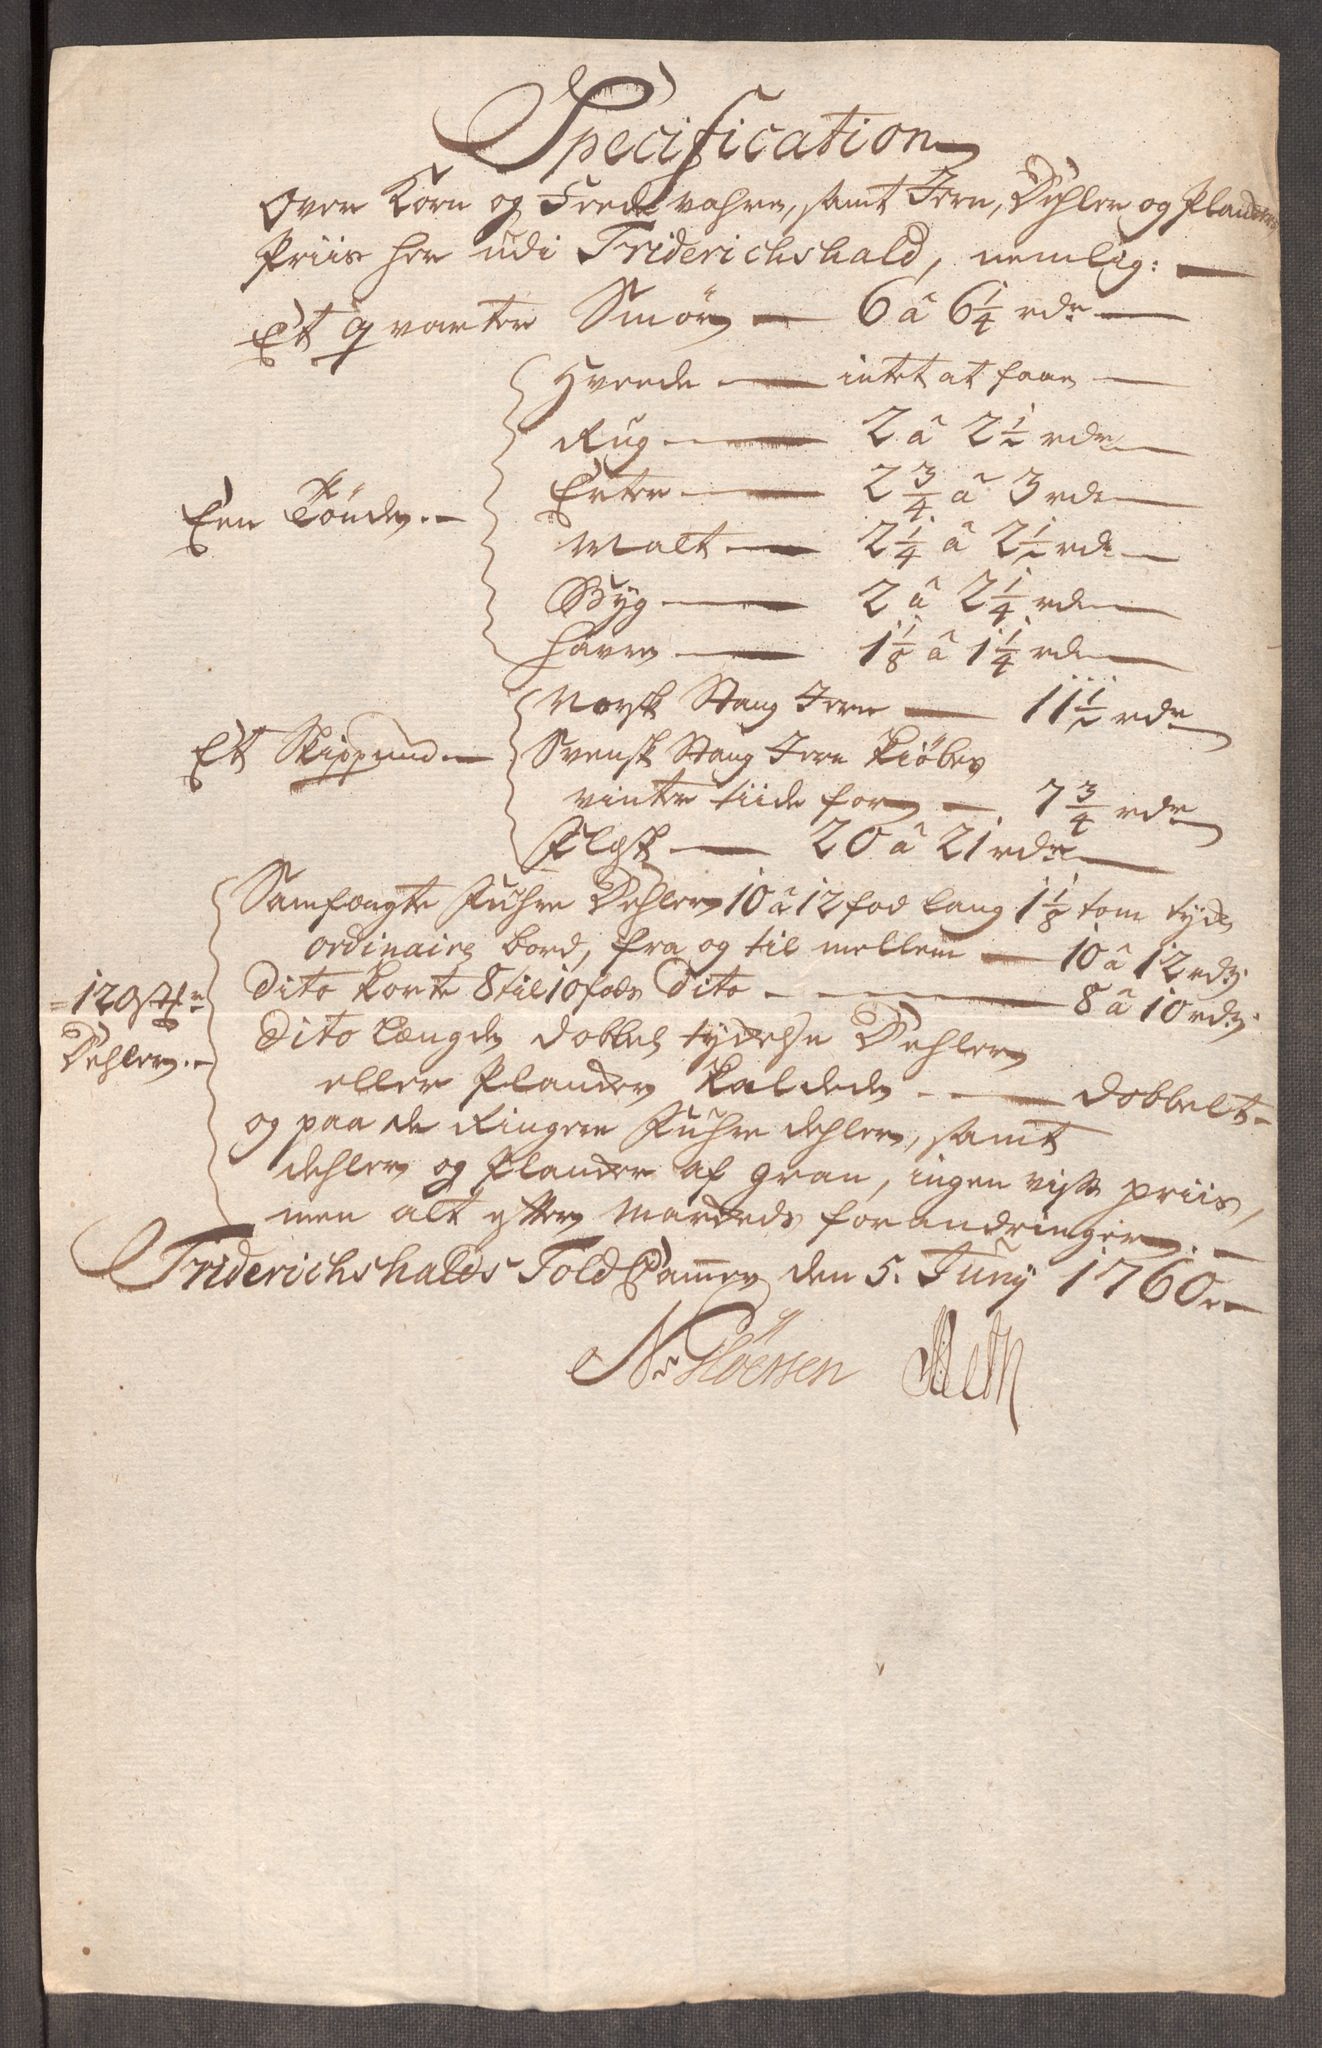 Specification
Over Korn og Feede vahre, samt Jern, Dehler og Planckers
Priis her udi Friderichshald, nemlig:
Et qvarteer Smör 6 â 6 1/4 rdr
Een Tönde. Hveede intet at faae
Rug 2 â 2 1/2 rdr
Erter 2 3/4 â 3 rdr
Malt 2 1/4 â 2 1/2 rdr
Byg 2 â 2 1/4 rdr
Havre 1 1/8 â 1 1/4 rdr
Et Skippund Norsk Stang Jern 11 1/2 rdr
Svensk Stang Jern kiöbes
vinter tiide for 7 3/4 rdr
Flesk 20 â 21 rdr
Samfængte Fuhre Dehler 10 â 12 fod lang 1 1/8 tom tyck
ordinaire bord, fra og til mellem 10 â 12 rdr
=120 Stk Dito korte 8 til 10 fods dito 8 â 10 rdr
Dehler. Dito Længde dobbel tyckelse Dehler
eller Plancker kaldede dobbelt
og paa de Ringere Fuhre dehler, samt
dehler og Plancker af gran, ingen viss priis,
men alt efter Marckeds forandringer.
Friderichshalds Told Cammer den 5. Junij 1760